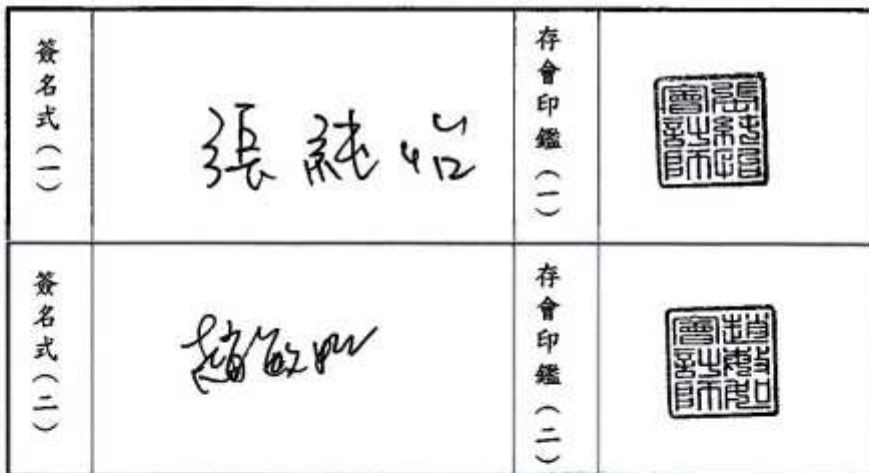 簽名式(一)
張純怡
存會印鑑(一)
張純怡
會計師
簽名式(二)
趙敏如
存會印鑑(二)
趙敏如
會計師